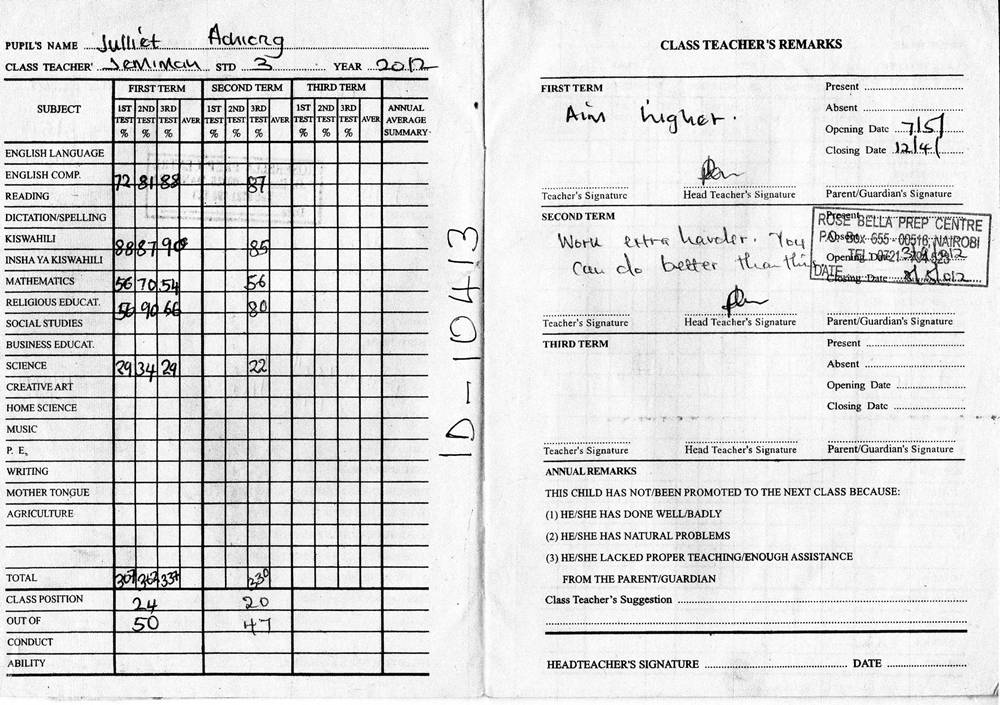 PUPIL'S NAME Julliet Adhiong
CLASS TEACHER' Jemimah STD 3 YEAR 2012
SUBJECT FIRST TERM SECOND TERM THIRD TERM
1ST TEST % 2ND TEST % 3RD TEST % AVER 1ST TEST % 2ND TEST % 3RD TEST % AVER 1ST TEST % 2ND TEST % 3RD TEST % AVER ANNUAL AVERAGE SUMMARY
ENGLISH LANGUAGE
ENGLISH COMP. 72 81 88 87
READING
DICTATION/SPELLING
KISWAHILI 88 87 90 85
INSHA YA KISWAHILI
MATHEMATICS 56 70 54 56
RELIGIOUS EDUCAT. 56 90 66 80
SOCIAL STUDIES
BUSINESS EDUCAT.
SCIENCE 29 34 29 22
CREATIVE ART
HOME SCIENCE
MUSIC
P. E,
WRITING
MOTHER TONGUE
AGRICULTURE
TOTAL 307 362 337 230
CLASS POSITION 24 20
OUT OF 50 47
CONDUCT
ABILITY
ID-10413
CLASS TEACHER'S REMARKS
FIRST TERM Present
Absent
Aim higher. Opening Date 7/5/
Closing Date 12/4/
Teacher's Signature Head Teacher's Signature Parent/Guardian's Signature
SECOND TERM Present
ROSE BELLA PREP CENTRE
P.O. Box 655 - 00516, NAIROBI
Work extra harder. You
can do better than this
Opening Date
TEL: 0721
DATE
Closing Date
Teacher's Signature Head Teacher's Signature Parent/Guardian's Signature
THIRD TERM Present
Absent
Opening Date
Closing Date
Teacher's Signature Head Teacher's Signature Parent/Guardian's Signature
ANNUAL REMARKS
THIS CHILD HAS NOT/BEEN PROMOTED TO THE NEXT CLASS BECAUSE:
(1) HE/SHE HAS DONE WELL/BADLY
(2) HE/SHE HAS NATURAL PROBLEMS
(3) HE/SHE LACKED PROPER TEACHING/ENOUGH ASSISTANCE
FROM THE PARENT/GUARDIAN
Class Teacher's Suggestion
HEADTEACHER'S SIGNATURE DATE